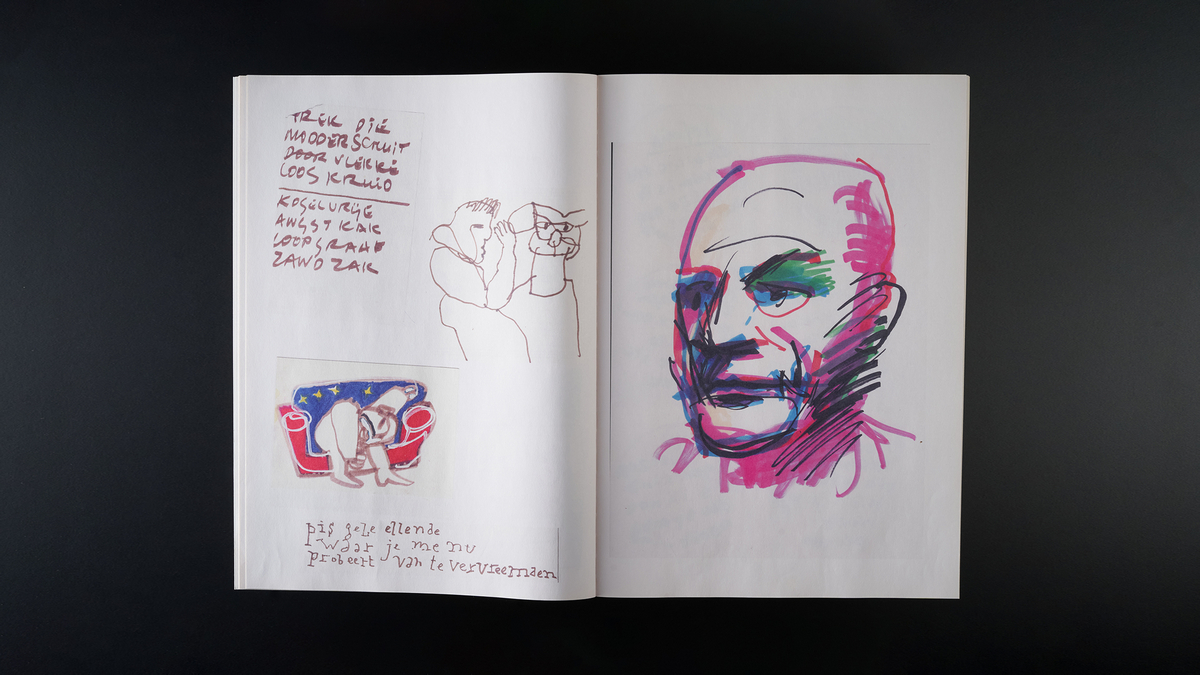 TREK DIE
MODDERSCHUIT
DOOR VLEKKE
LOOS KRUID
KOGELVRIJE
ANGST KAK
LOOPGRAAF
ZAND ZAK
pis gele ellende
waar je me nu
probeert van te vervreemden